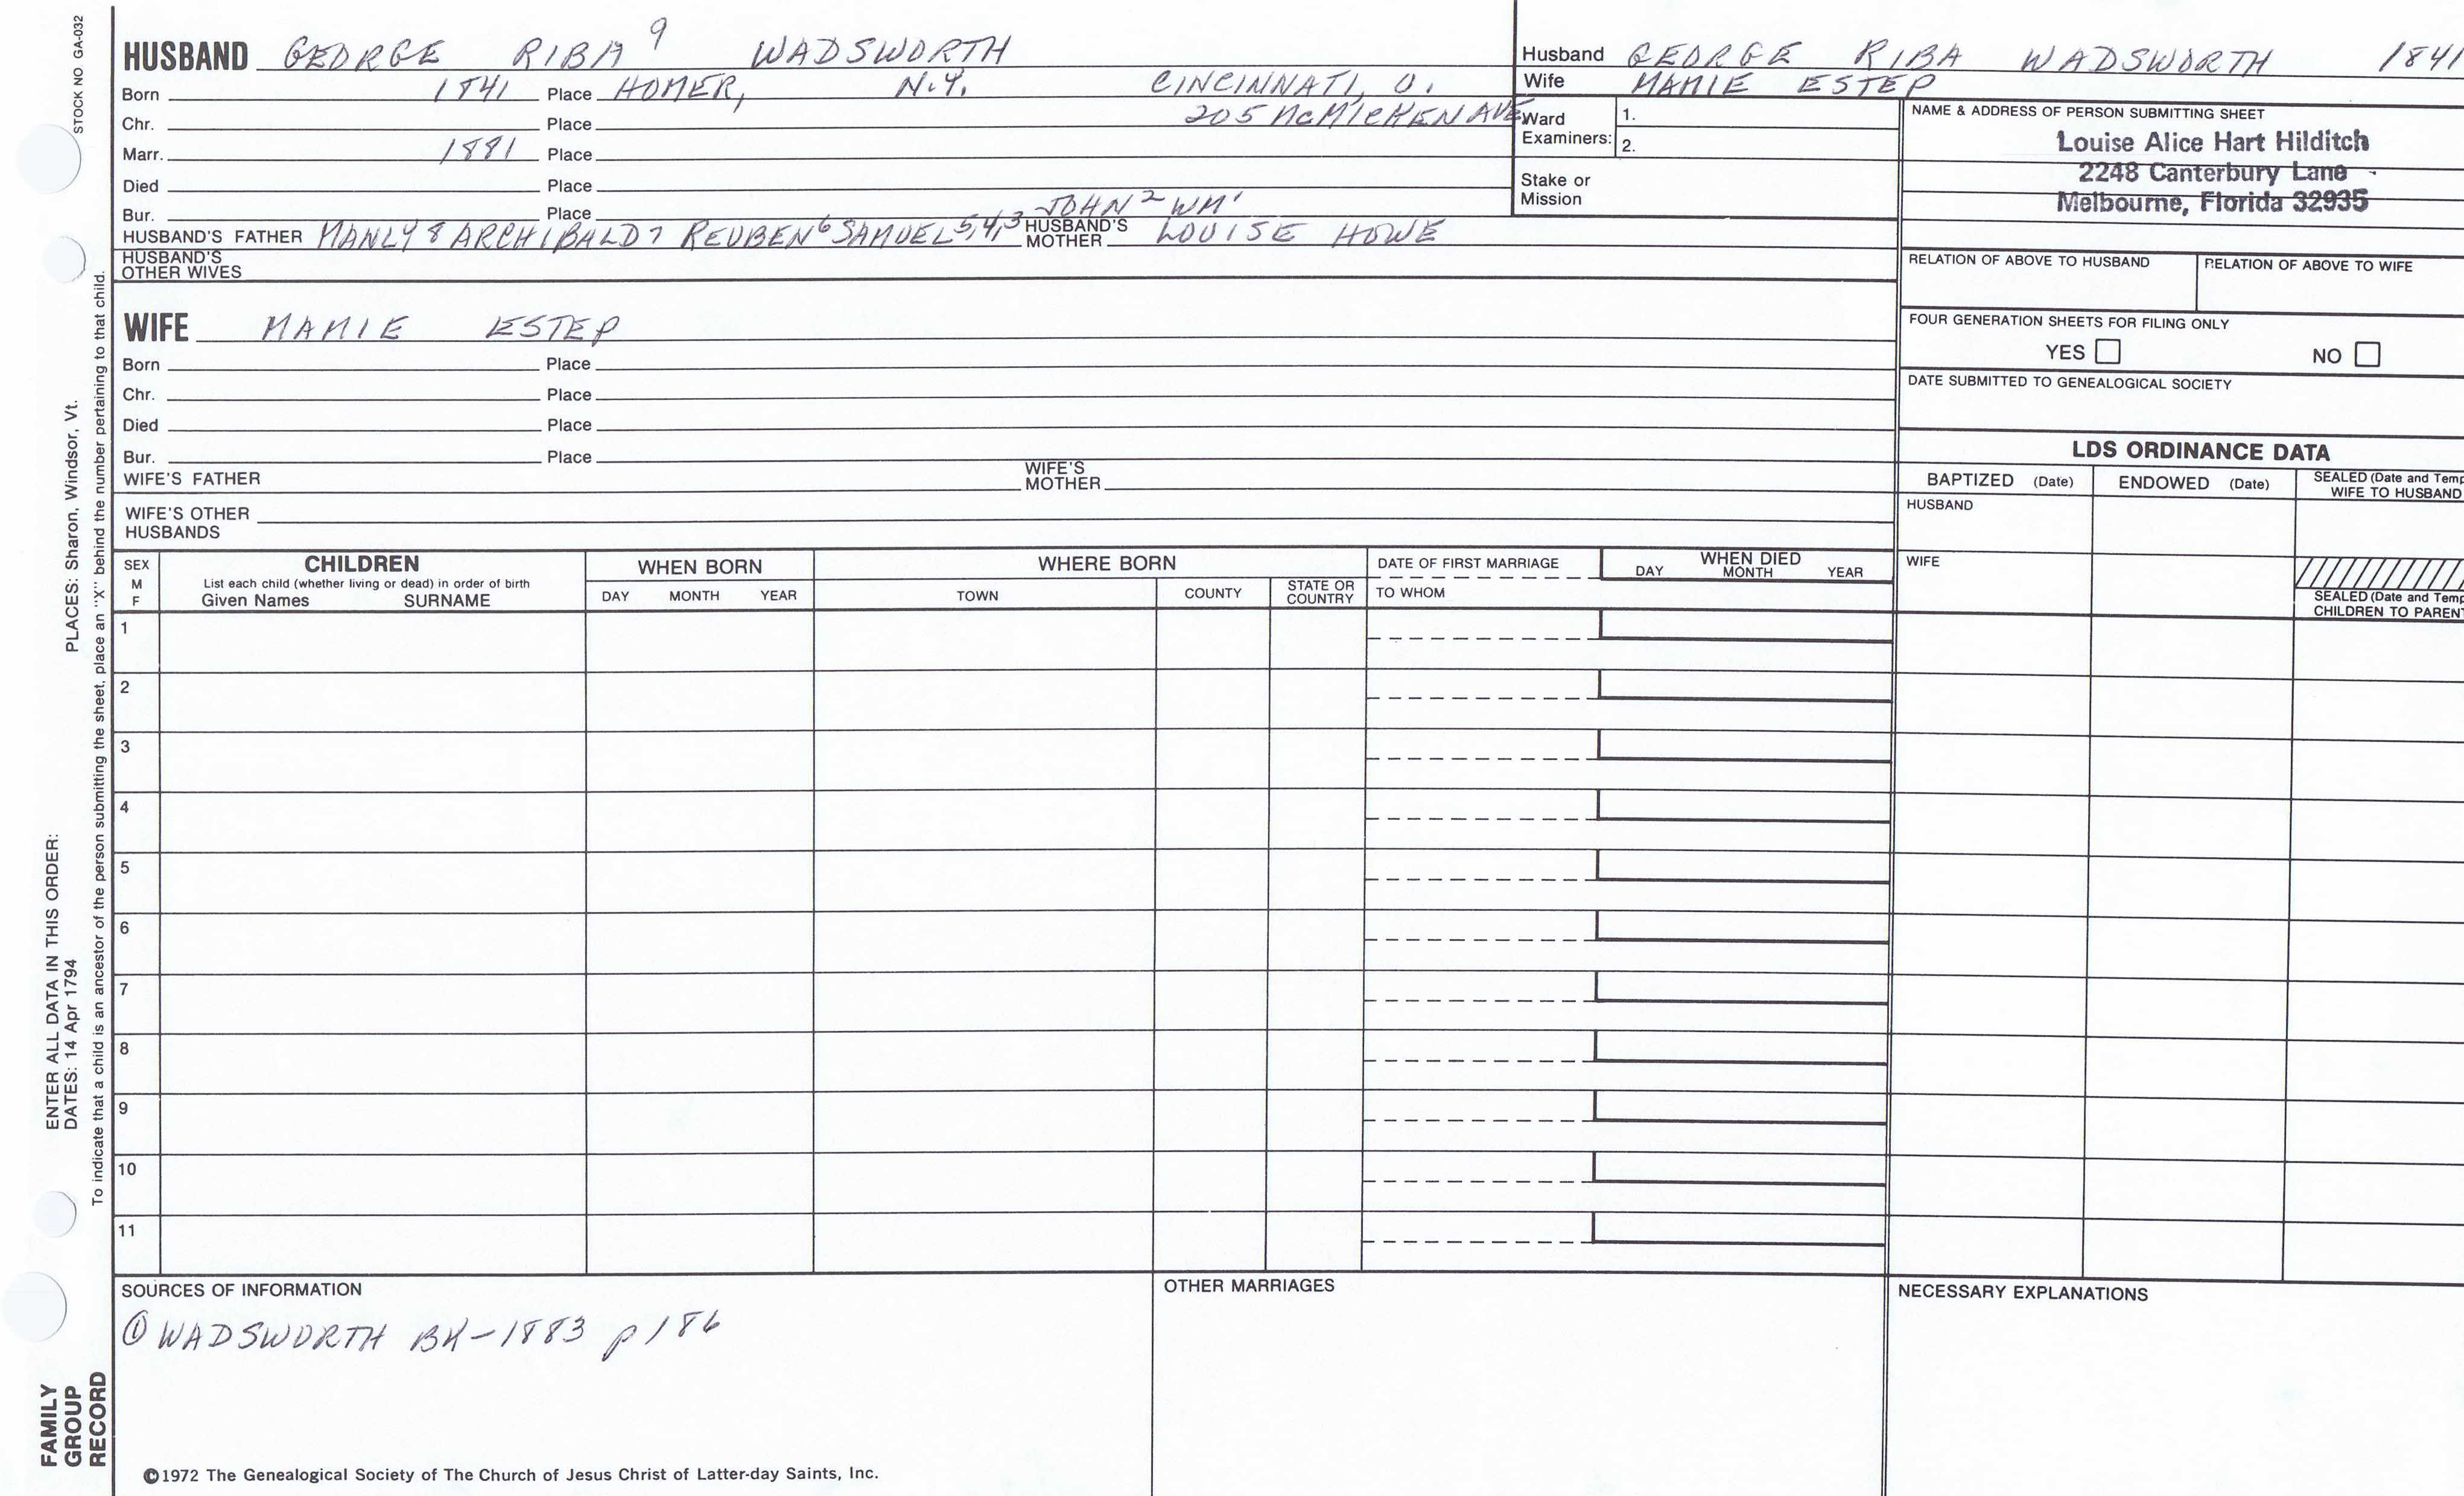 STOCK NO GA-032
HUSBAND GEORGE RIBA 9 WADSWORTH
Born 1841 Place HOMER, N.Y. CINCINNATI, O.
Chr. Place 205 McMICKEN AVE
Marr. 1881 Place
Died Place
Bur. Place JOHN 2 WM 1
HUSBAND'S FATHER MANLY 8 ARCHIBALD 7 REUBEN 6 SAMUEL 5,4,3 HUSBAND'S MOTHER LOUISE HOWE
HUSBAND'S OTHER WIVES
WIFE MAMIE ESTEP
Born Place
Chr. Place
Died Place
Bur. Place
WIFE'S FATHER WIFE'S MOTHER
WIFE'S OTHER HUSBANDS
Husband GEORGE RIBA WADSWORTH 1841
Wife MAMIE ESTEP
Ward Examiners: 1.
2.
Stake or Mission
NAME & ADDRESS OF PERSON SUBMITTING SHEET
Louise Alice Hart Hilditch
2248 Canterbury Lane
Melbourne, Florida 32935
RELATION OF ABOVE TO HUSBAND RELATION OF ABOVE TO WIFE
FOUR GENERATION SHEETS FOR FILING ONLY
YES NO
DATE SUBMITTED TO GENEALOGICAL SOCIETY
LDS ORDINANCE DATA
BAPTIZED (Date) ENDOWED (Date) SEALED (Date and Temp
WIFE TO HUSBAND
HUSBAND
WIFE
SEALED (Date and Temp
CHILDREN TO PARENT
SEX M F CHILDREN WHEN BORN WHERE BORN DATE OF FIRST MARRIAGE WHEN DIED
List each child (whether living or dead) in order of birth
Given Names SURNAME DAY MONTH YEAR TOWN COUNTY STATE OR COUNTRY TO WHOM DAY MONTH YEAR
1
2
3
4
5
6
7
8
9
10
11
SOURCES OF INFORMATION
① WADSWORTH BK-1883 p 186
OTHER MARRIAGES
NECESSARY EXPLANATIONS
©1972 The Genealogical Society of The Church of Jesus Christ of Latter-day Saints, Inc.
ENTER ALL DATA IN THIS ORDER:
DATES: 14 Apr 1794 PLACES: Sharon, Windsor, Vt.
To indicate that a child is an ancestor of the person submitting the sheet, place an "X" behind the number pertaining to that child.
FAMILY
GROUP
RECORD